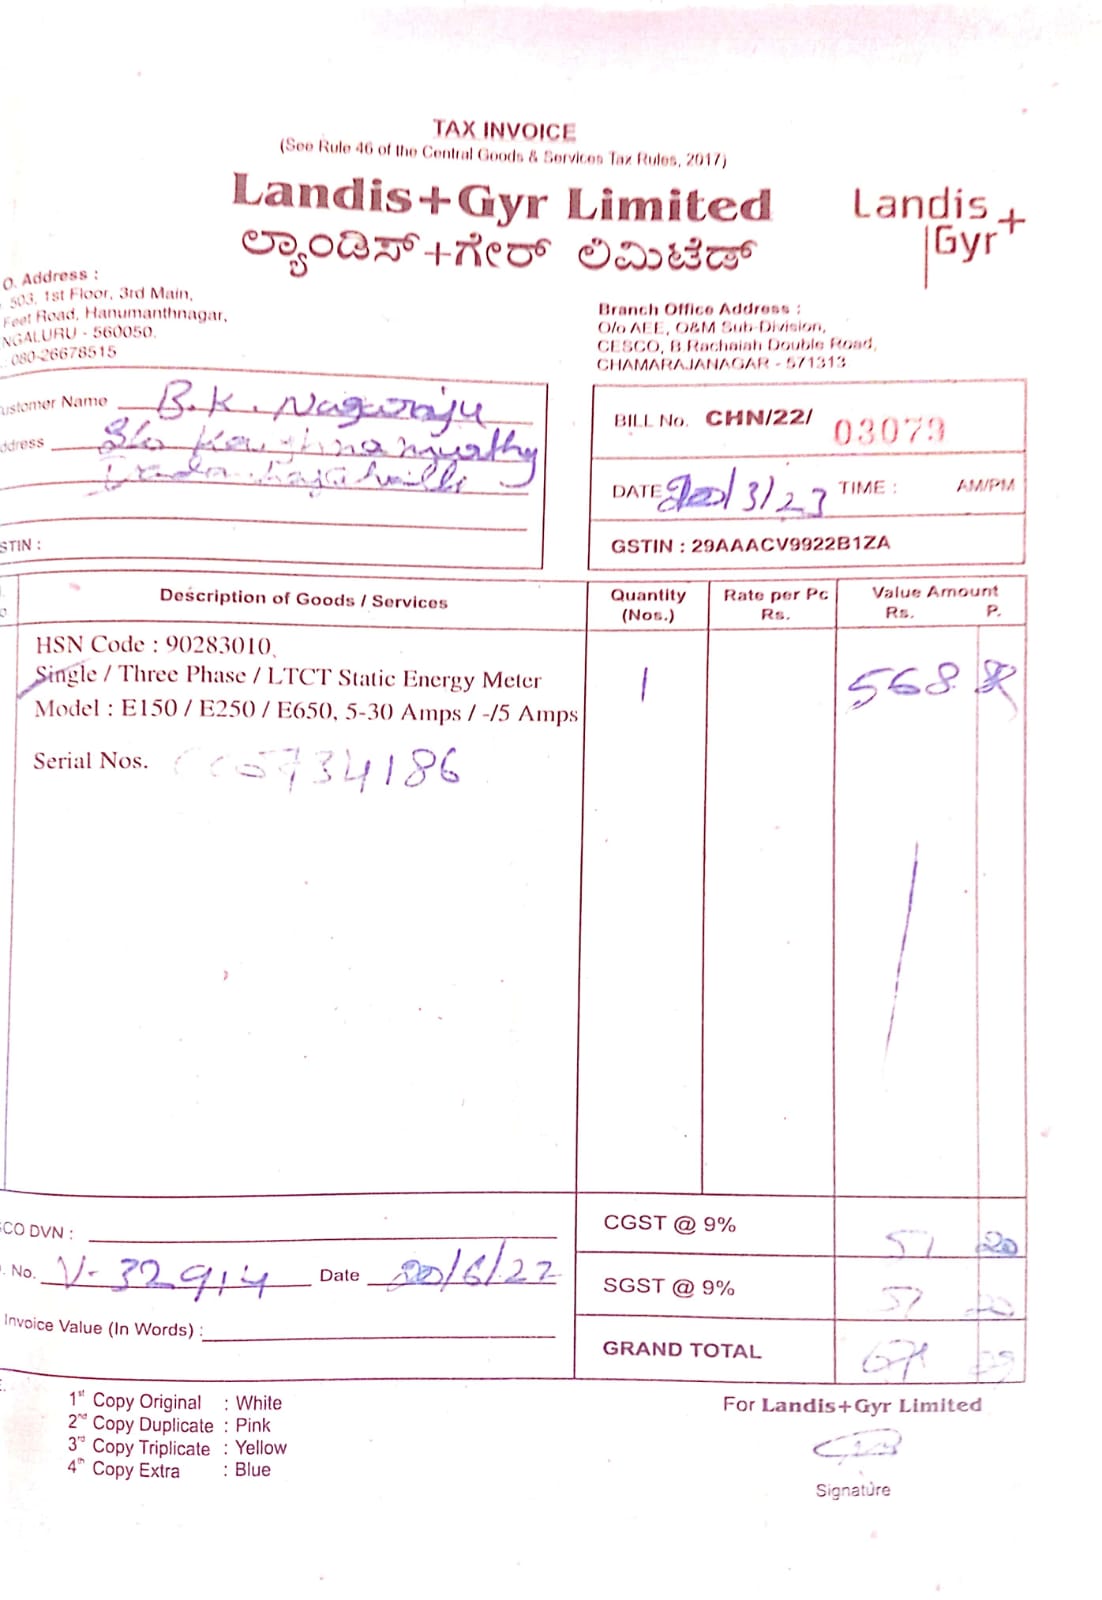 TAX INVOICE
(See Rule 46 of the Central Goods & Services Tax Rules, 2017)
Landis+Gyr Limited
ಲ್ಯಾಂಡಿಸ್+ಗೇರ್ ಲಿಮಿಟೆಡ್
Landis+
Gyr
O. Address :
503, 1st Floor, 3rd Main,
Feet Road, Hanumanthnagar,
NGALURU - 560050.
080-26678515
Branch Office Address :
O/o AEE, O&M Sub-Division,
CESCO, B Rachaiah Double Road,
CHAMARAJANAGAR - 571313
ustomer Name B.K. Nagaraju
ddress S/o
STIN :
BILL No. CHN/22/ 03079
DATE 20/3/23 TIME : AM/PM
GSTIN : 29AAACV9922B1ZA
Description of Goods / Services Quantity (Nos.) Rate per Pc Rs. Value Amount Rs. P.
HSN Code : 90283010,
Single / Three Phase / LTCT Static Energy Meter 1 568
Model : E150 / E250 / E650, 5-30 Amps / -/5 Amps
Serial Nos. 5734186
CO DVN :
CGST @ 9% 51 20
. No. V-32914 Date 20/6/22
SGST @ 9% 51
Invoice Value (In Words) :
GRAND TOTAL
1st Copy Original : White
2nd Copy Duplicate : Pink
3rd Copy Triplicate : Yellow
4th Copy Extra : Blue
For Landis+Gyr Limited
Signature